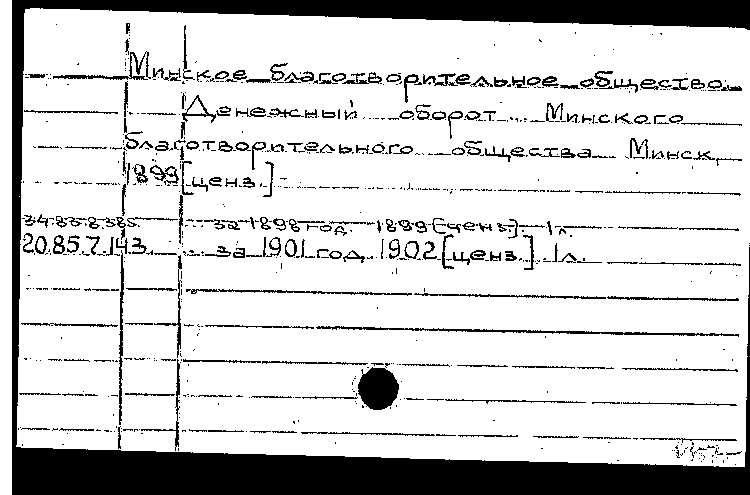 Минское благотворительное общество.
Денежный оборот Минского
благотворительного общества Минск,
1899 [ценз.]
за 1898 год. 1899 [ценз]. 1 л.
20.85.7.143. .. за 1901 год, 1902 [ценз.] 1 л.